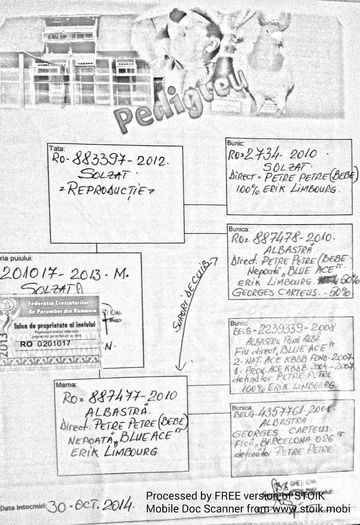 Pedigreu
Tata:
RO- 883397- 2012.
SOLZAT.
"REPRODUCTIE"
Bunic:
RO= 2734- 2010
SOLZAT.
Direct - PETRE PETRE (BEBE)
100% ERIK LIMBOURG.
Bunica:
RO= 887478-2010.
ALBASTRĂ.
Direct. PETRE PETRE (BEBE
Nepoată "BLUE ACE"
ERIK LIMBOURG 50%
GEORGES CARTEUS. - 50%
ria puiului:
201017 - 2013 - M.
SOLZATĂ
Federatia Crescatorilor
de Porumbei din Romania
Talon de proprietate al inelului
2013
RO 0201017
SURORI DE CUIB.
Bunic:
BELG- 2239339-2008
ALBASTRU PANĂ ALBĂ
Fiu direct "BLUE ACE"
2. NAT. ACE KBDB FOND-2007
1. PROV. ACE KBDB.
detinător PETRE PETRE
100% ERIK LIMBOURG.
Mama:
RO= 887477-2010
ALBASTRĂ.
Direct PETRE PETRE (BEBE)
NEPOATĂ "BLUE ACE"
ERIK LIMBOURG
Bunica:
ALBASTRĂ
GEORGES CARTEUS.
Fică "BARCELONA 026"
detinător PETRE PETRE.
Data intocmirii: 30 - OCT. 2014.
Processed by FREE version of STOIK
Mobile Doc Scanner from www.stoik.mobi